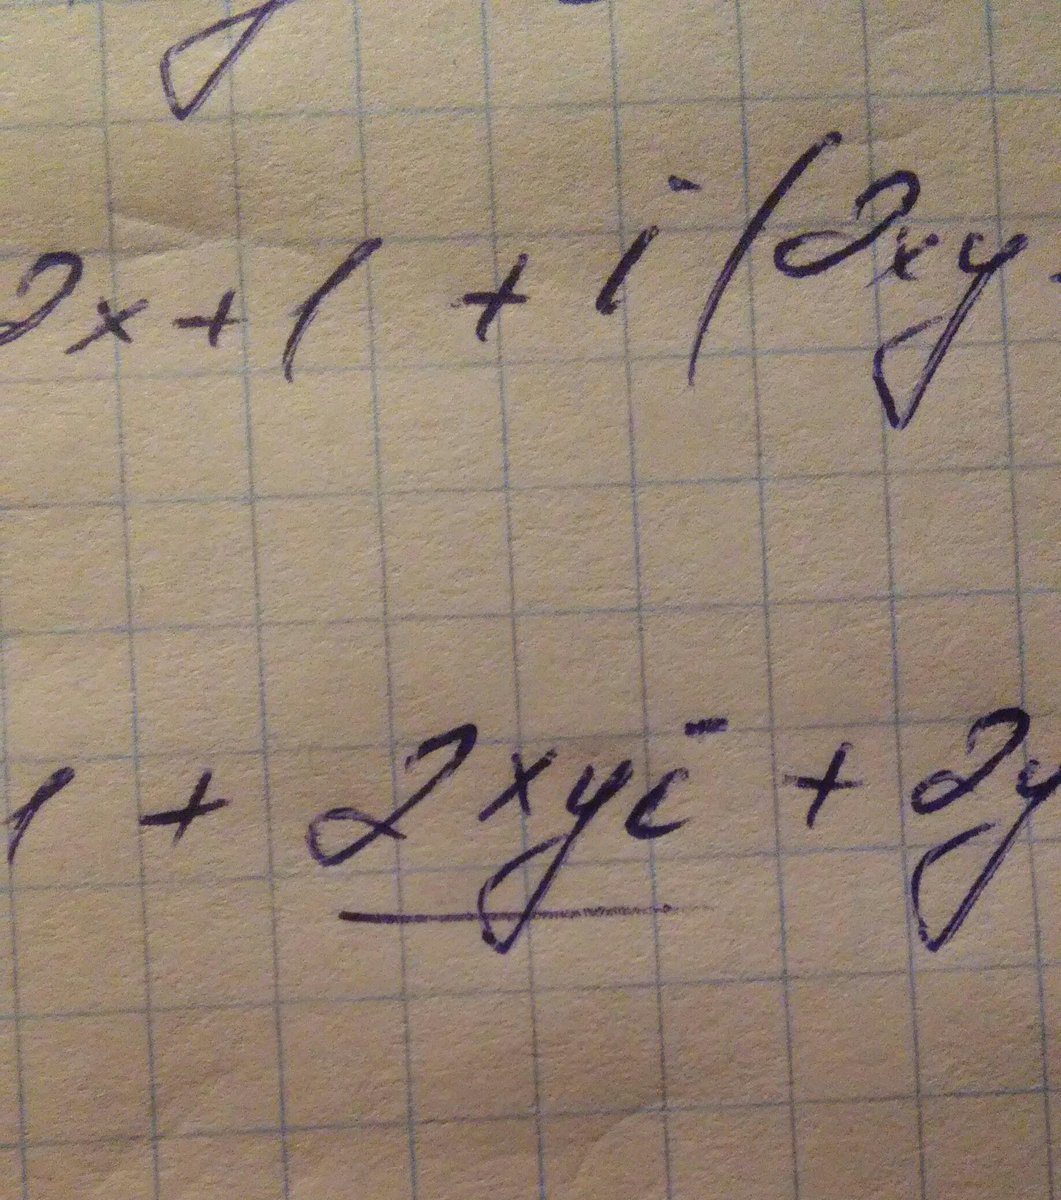 2x + 1 + i (2xy
1 + 2xyi + 2y